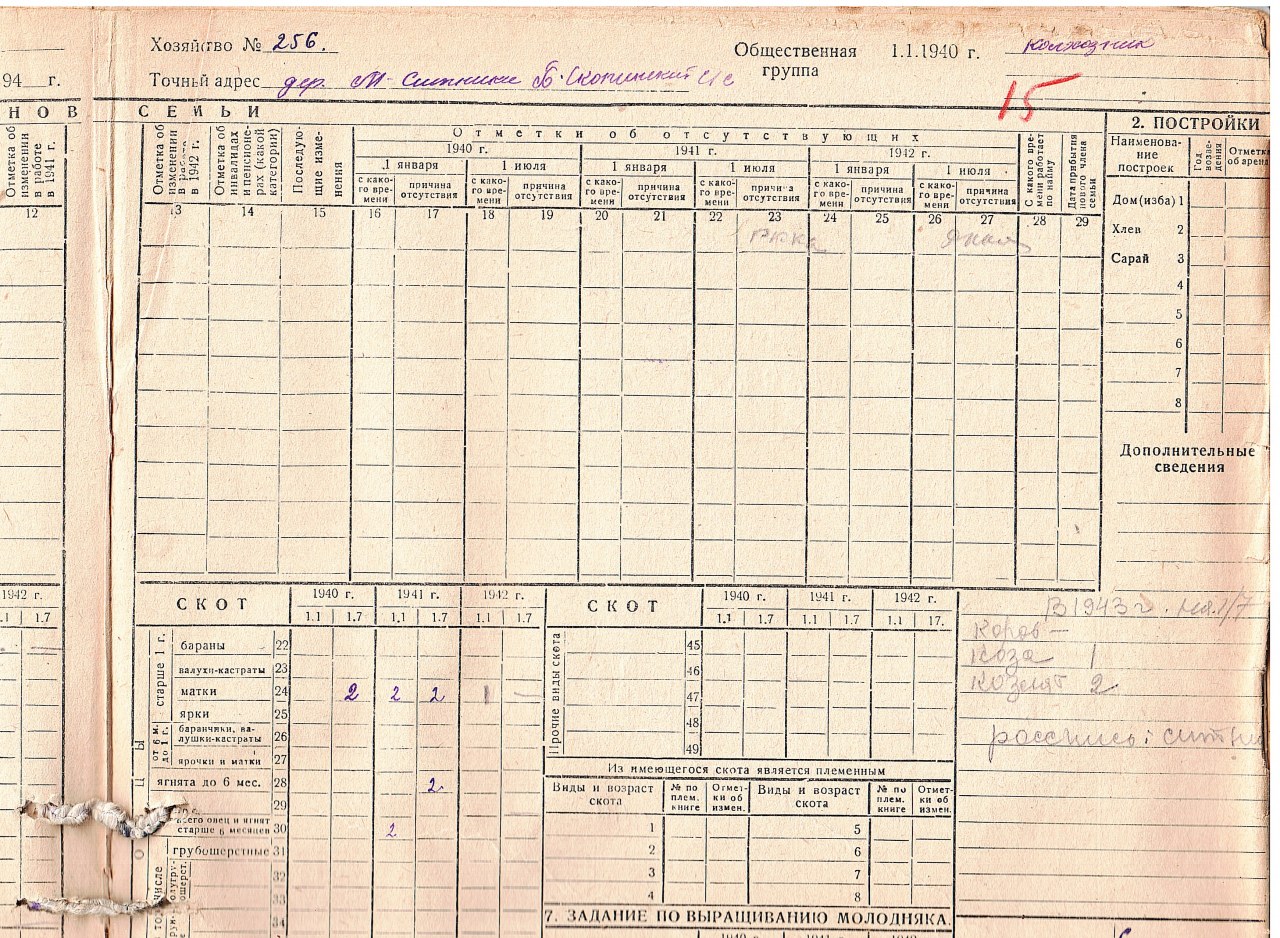 Хозяйство № 256.
Общественная группа 1.1.1940 г. колхозник
94 г.
Точный адрес дер. М-Ситники Б-Скопинский с/с
15
НОВ СЕМЬИ
2. ПОСТРОЙКИ
Отметка об изменении в работе в 1941 г.
Отметка об изменении в работе в 1942 г.
Отметка об инвалидах и пенсионерах (какой категории)
Последующие изменения
Отметки об отсутствующих
1940 г. 1941 г. 1942 г.
1 января 1 июля 1 января 1 июля 1 января 1 июля
с како-го вре-мени причина отсутствия с како-го вре-мени причина отсутствия с како-го вре-мени причина отсутствия с како-го вре-мени причина отсутствия с како-го вре-мени причина отсутствия с како-го вре-мени причина отсутствия
С какого вре-мени работает по найму
Дата прибытия нового члена семьи
Наименова-ние построек
Год возве-дения
Отметка об аренд
12 13 14 15 16 17 18 19 20 21 22 23 24 25 26 27 28 29
РККА
Дом(изба) 1
Хлев 2
Сарай 3
4
5
6
7
8
Дополнительные сведения
1942 г.
.1 1.7
СКОТ 1940 г. 1941 г. 1942 г.
1.1 1.7 1.1 1.7 1.1 1.7
старше 1 г.
бараны 22
валухи-кастраты 23
матки 24 2 2 2 1 —
ярки 25
от 6 м. до 1 г.
баранчики, ва-лушки-кастраты 26
ярочки и матки 27
ягнята до 6 мес. 28 2
29
всего овец и ягнят старше 6 месяцев 30 2
грубошерстные 31
32
33
34
СКОТ 1940 г. 1941 г. 1942 г.
1.1 1.7 1.1 1.7 1.1 17.
Прочие виды скота
45
46
47
48
49
Из имеющегося скота является племенным
Виды и возраст скота № по плем. книге Отмет-ки об измен. Виды и возраст скота № по плем. книге Отмет-ки об измен.
1 5
2 6
3 7
4 8
7. ЗАДАНИЕ ПО ВЫРАЩИВАНИЮ МОЛОДНЯКА.
1940 г. 1941 г. 1942 г.
В 1943 г. на 1/7
Коров —
Коза 1
Козлят 2